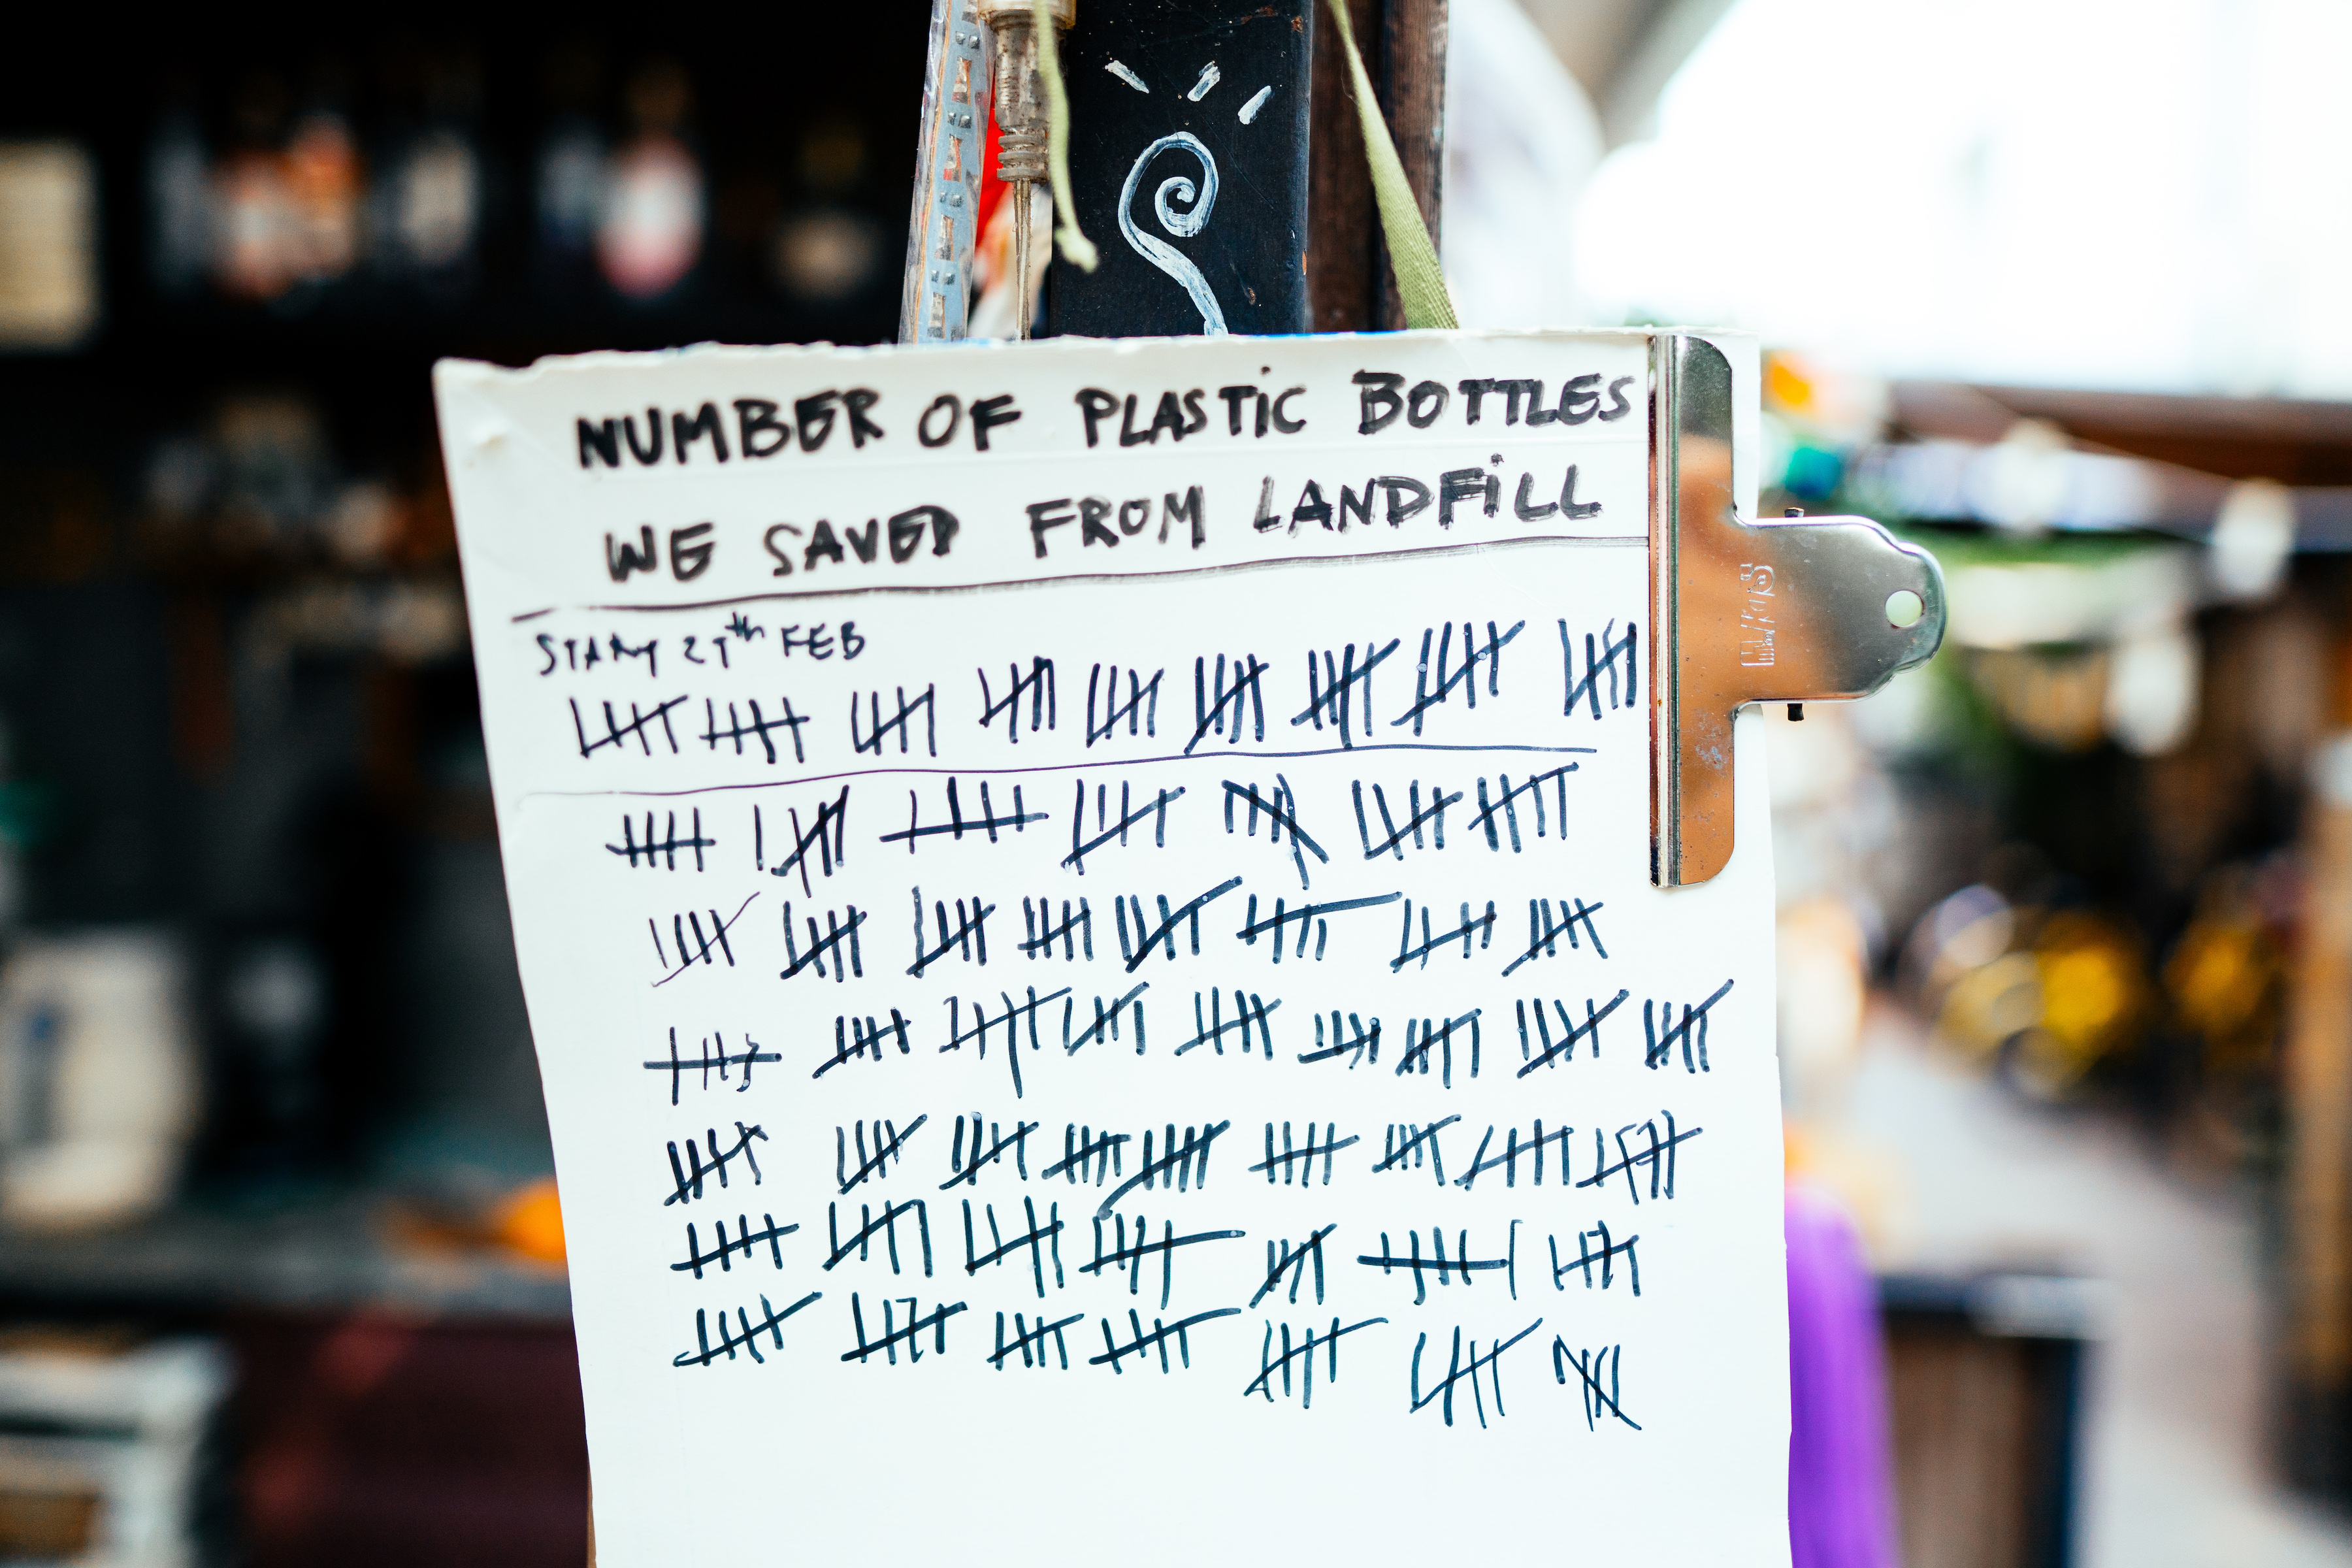 NUMBER OF PLASTIC BOTTLES
WE SAVED FROM LANDFILL
FEB